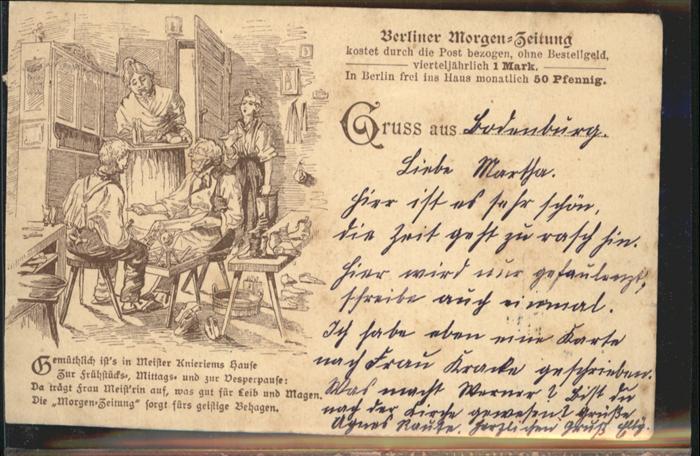 Berliner Morgen-Zeitung
kostet durch die Post bezogen, ohne Bestellgeld,
vierteljährlich 1 Mark.
In Berlin frei ins Haus monatlich 50 Pfennig.
Gruss aus Bodenburg.
Liebe Martha.
Hier ist es sehr schön,
die Zeit geht zu rasch hin.
Hier wird nur gefaulenzt,
schreibe auch einmal.
Ich habe eben eine Karte
nach Frau Kracke geschrieben.
Was macht Werner? Bist du
nach der Kirche gewesen? Grüße
Agnes Raute. Herzlichen Gruß
Gemüthlich ist's in Meister Knieriems Hause
Zur Frühstücks-, Mittags- und zur Vesperpause:
Da trägt Frau Meist'rin auf, was gut für Leib und Magen.
Die „Morgen-Zeitung" sorgt fürs geistige Behagen.